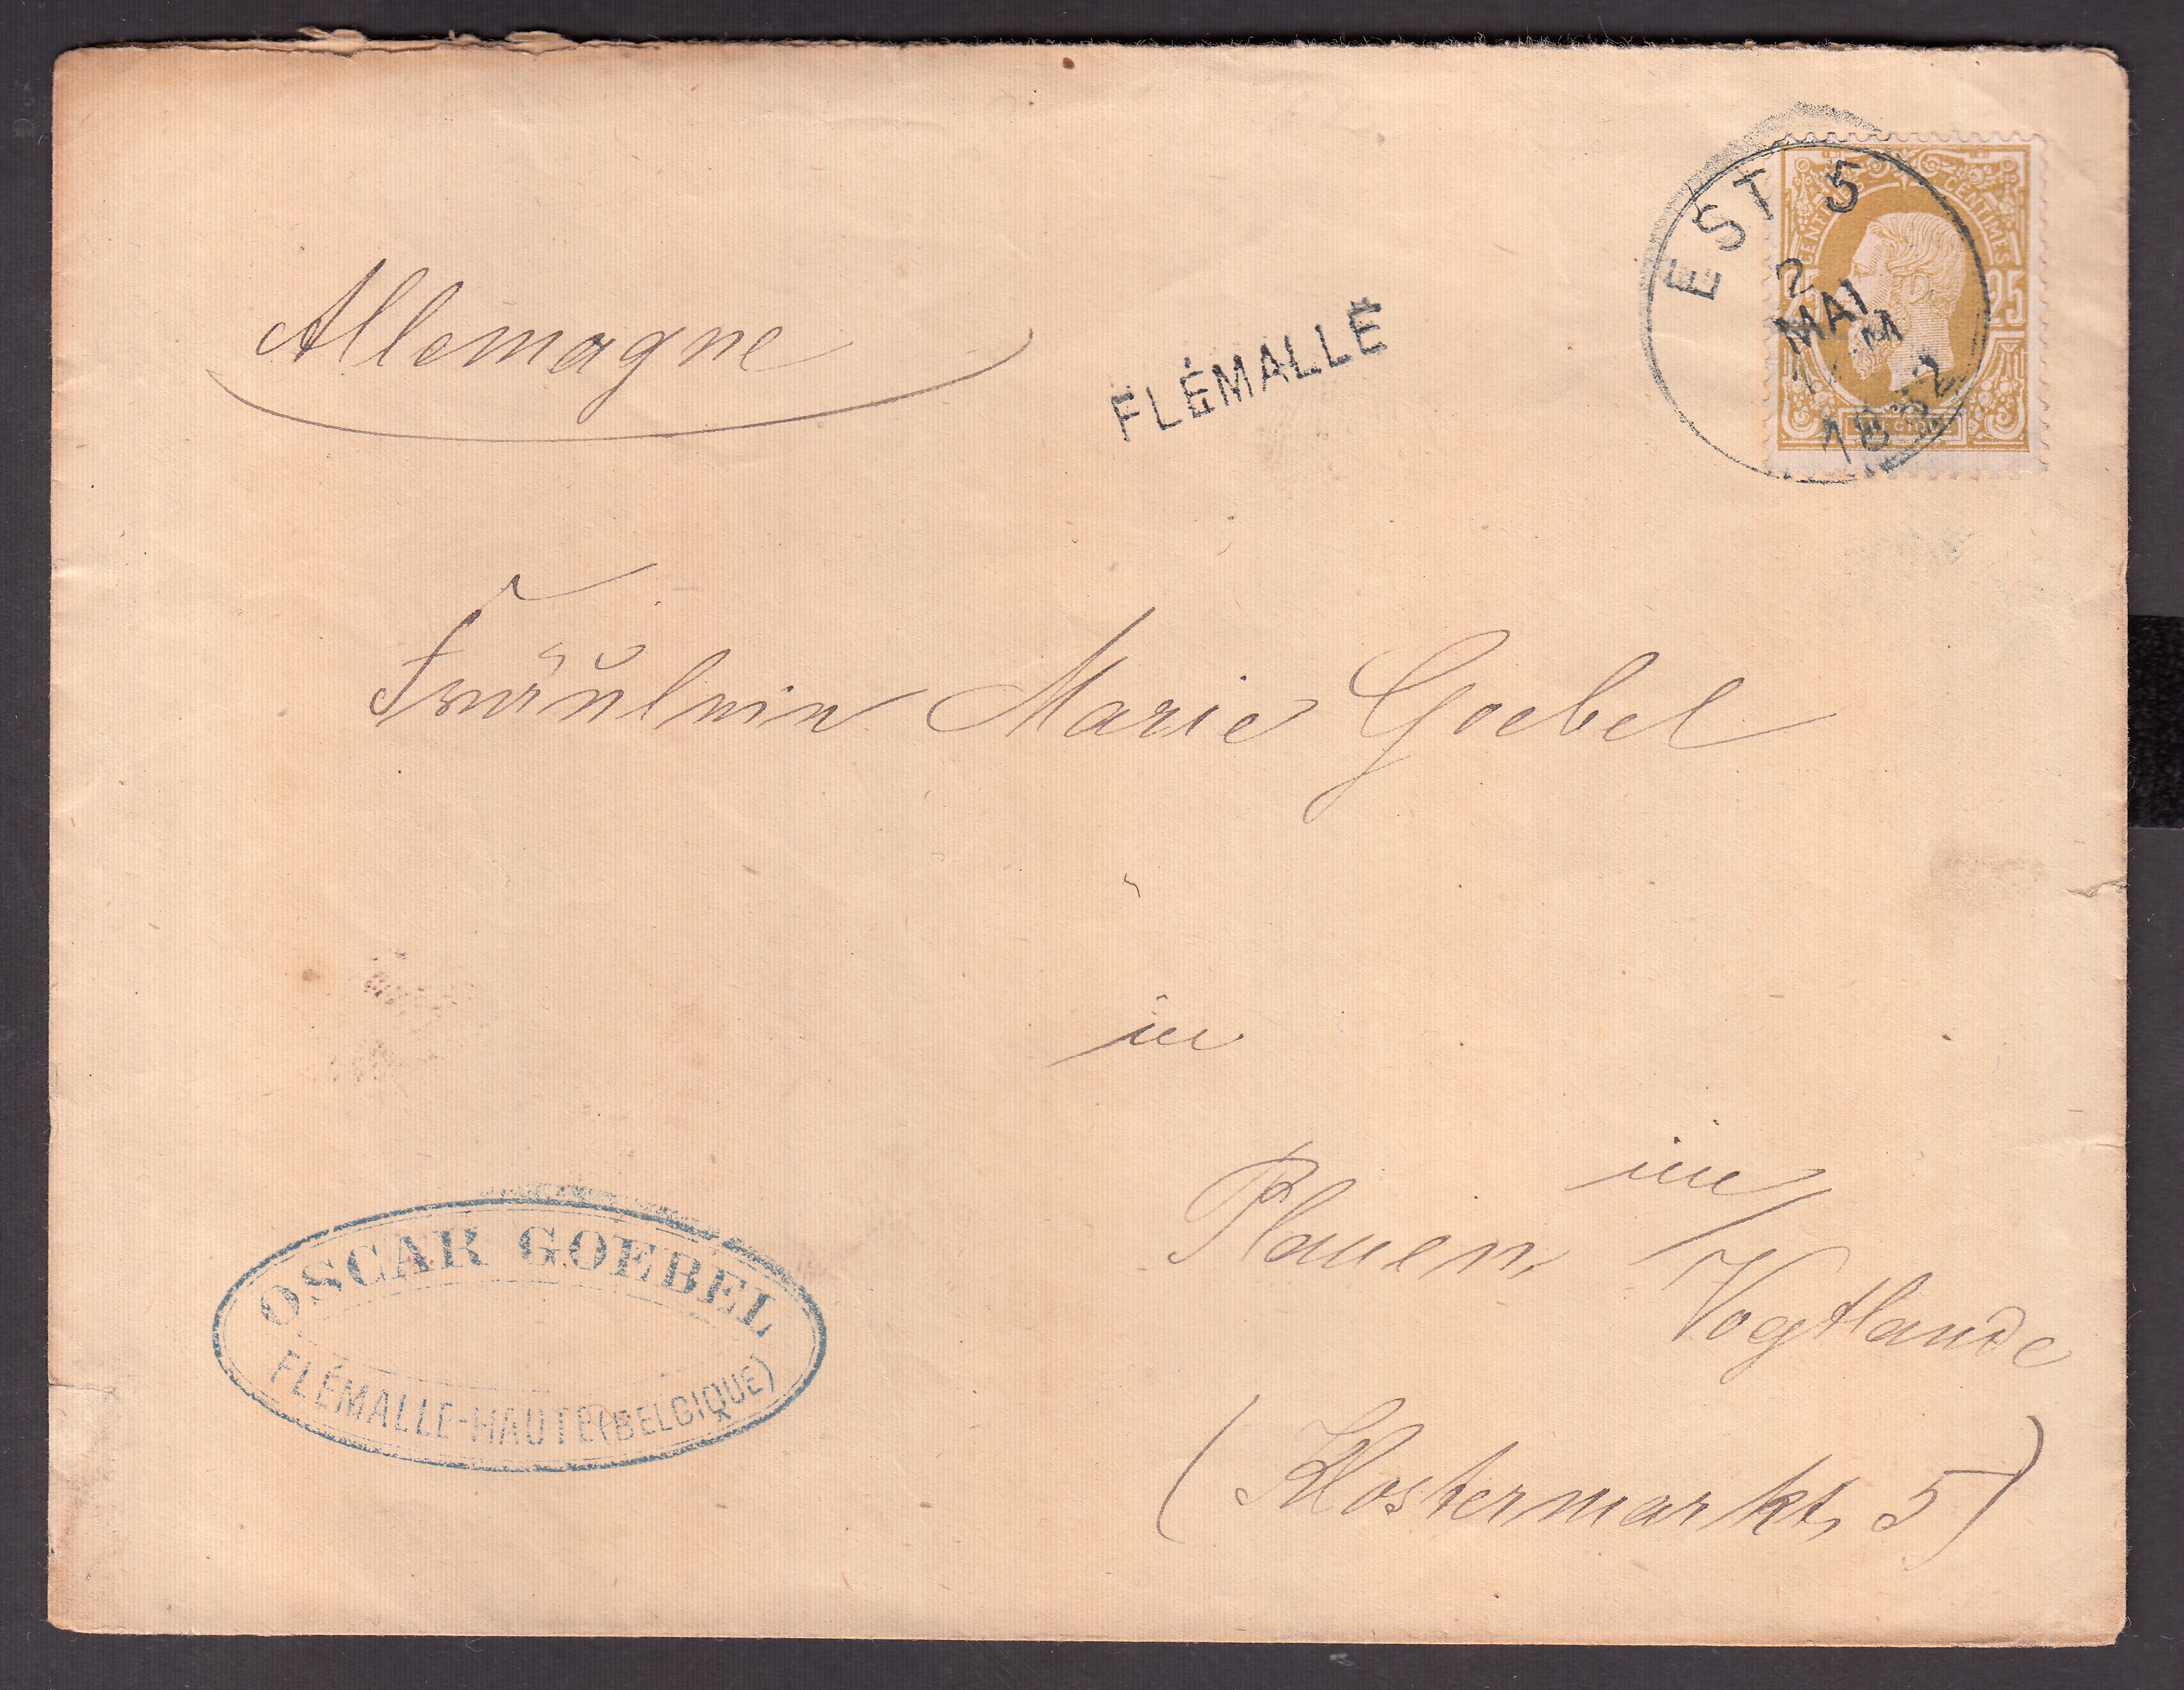 EST 5
2
MAI
1882
CENTIMES
25
Allemagne
FLÉMALLE
Fräulein Marie Goebel
in
Plauen, im
Vogtlande
(Klostermarkt, 5)
OSCAR GOEBEL
FLÉMALLE-HAUTE (BELGIQUE)